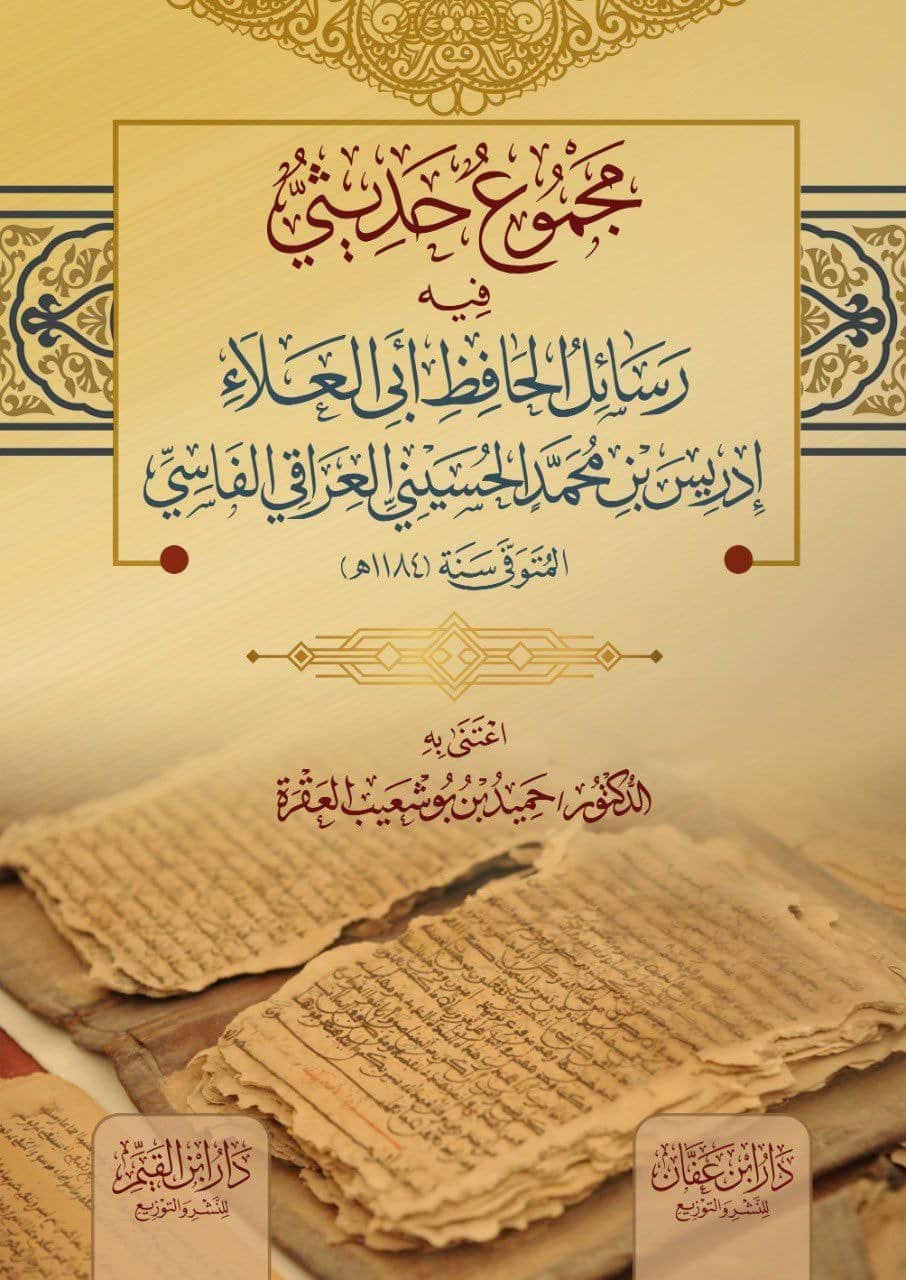 مَجْمُوعُ حَدِيثِيٌّ
فِيهِ
رَسَائِلُ الحَافِظِ أَبِي العَلَاءِ
إِدرِيسَ بْنِ مُحَمَّدٍ الحُسَيْنِيِّ العِرَاقِيِّ الفَاسِيِّ
المُتَوَفَّى سَنَة (١١٨٤هـ)
اعْتَنَى بِهِ
الدُّكْتُورُ/ حَمِيدُ بْنُ بُوشعَيب العَقْرَة
دَارُ ابْن عَفَّان
للنَّشْرِ وَالتَّوزِيع
دَارُ ابْنِ القَيِّمِ
للنَّشْرِ وَالتَّوزِيع